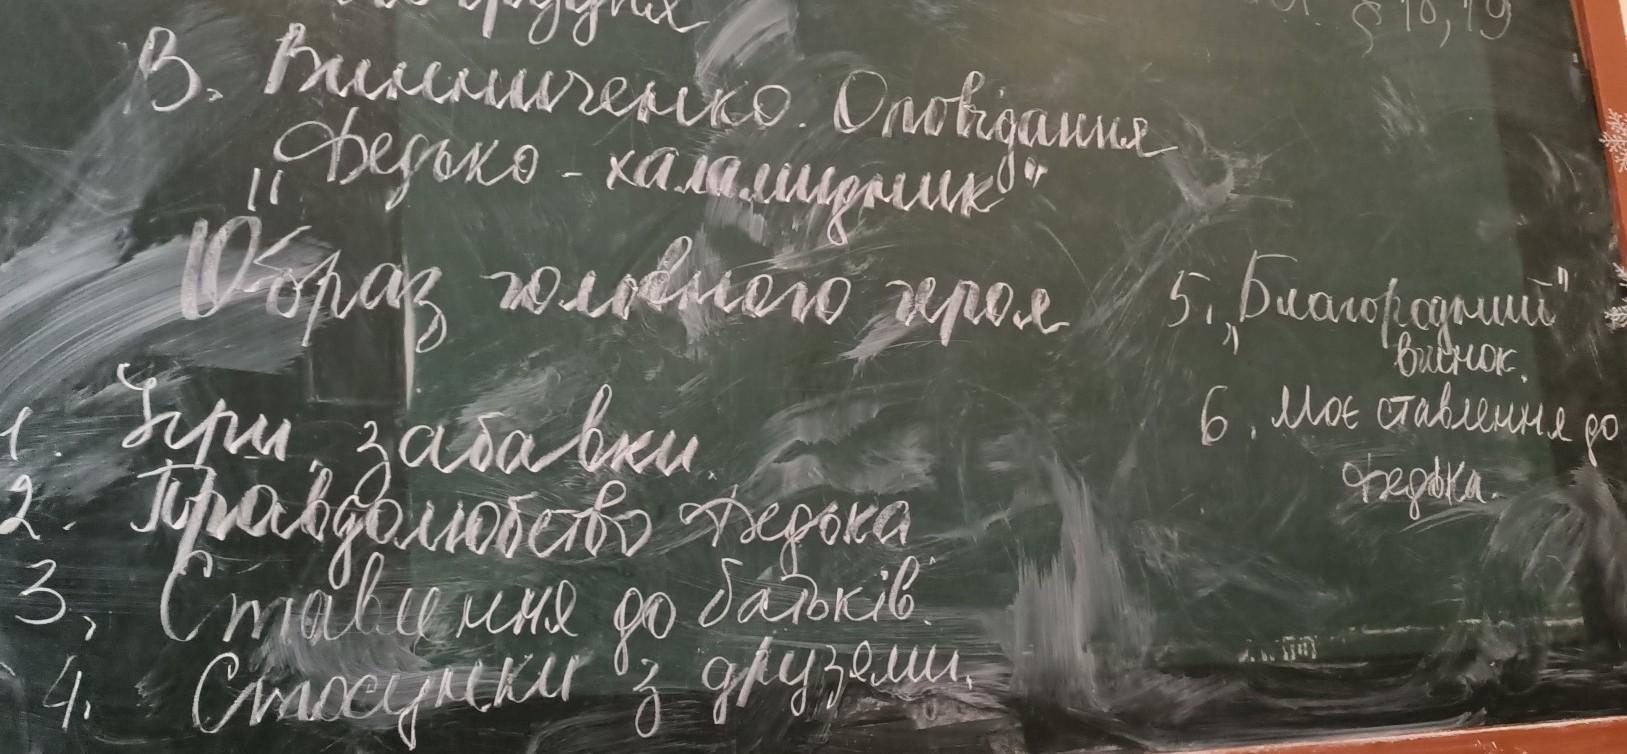 § 18, 19
В. Винниченко. Оповідання
„Федько - халамидник"
Образ головного героя
1. Ігри, забавки.
2. Правдолюбство Федька
3. Ставлення до батьків.
4. Стосунки з друзями.
5. „Благородний"
вчинок.
6. Моє ставлення до
Федька.